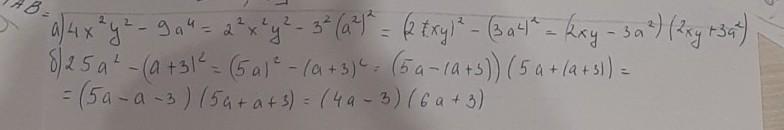 АВ=
а) 4x²y² - 9a⁴ = 2²x²y² - 3²(a²)² = (2xy)² - (3a²)² = (2xy - 3a²)(2xy + 3a²)
б) 25a² - (a+3)² = (5a)² - (a+3)² = (5a - (a+3))(5a + (a+3)) =
= (5a - a - 3)(5a + a + 3) = (4a - 3)(6a + 3)